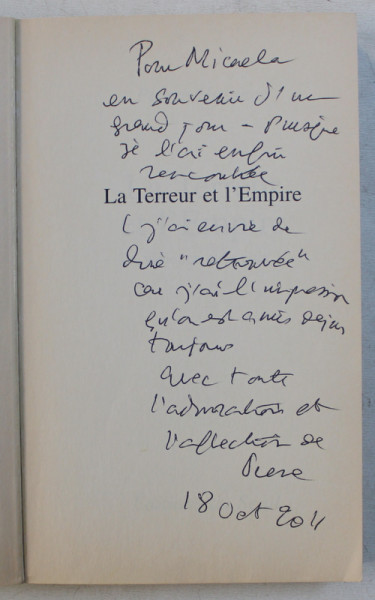 Pour Micaela
en souvenir d'un
grand jour – puisque
je l'ai enfin
rencontrée
La Terreur et l'Empire
( j'ai envie de
dire "retrouvée"
car j'ai l'impression
qu'on est amis depuis
toujours
avec toute
l'admiration et
l'affection de
Pierre
18 Oct 2011